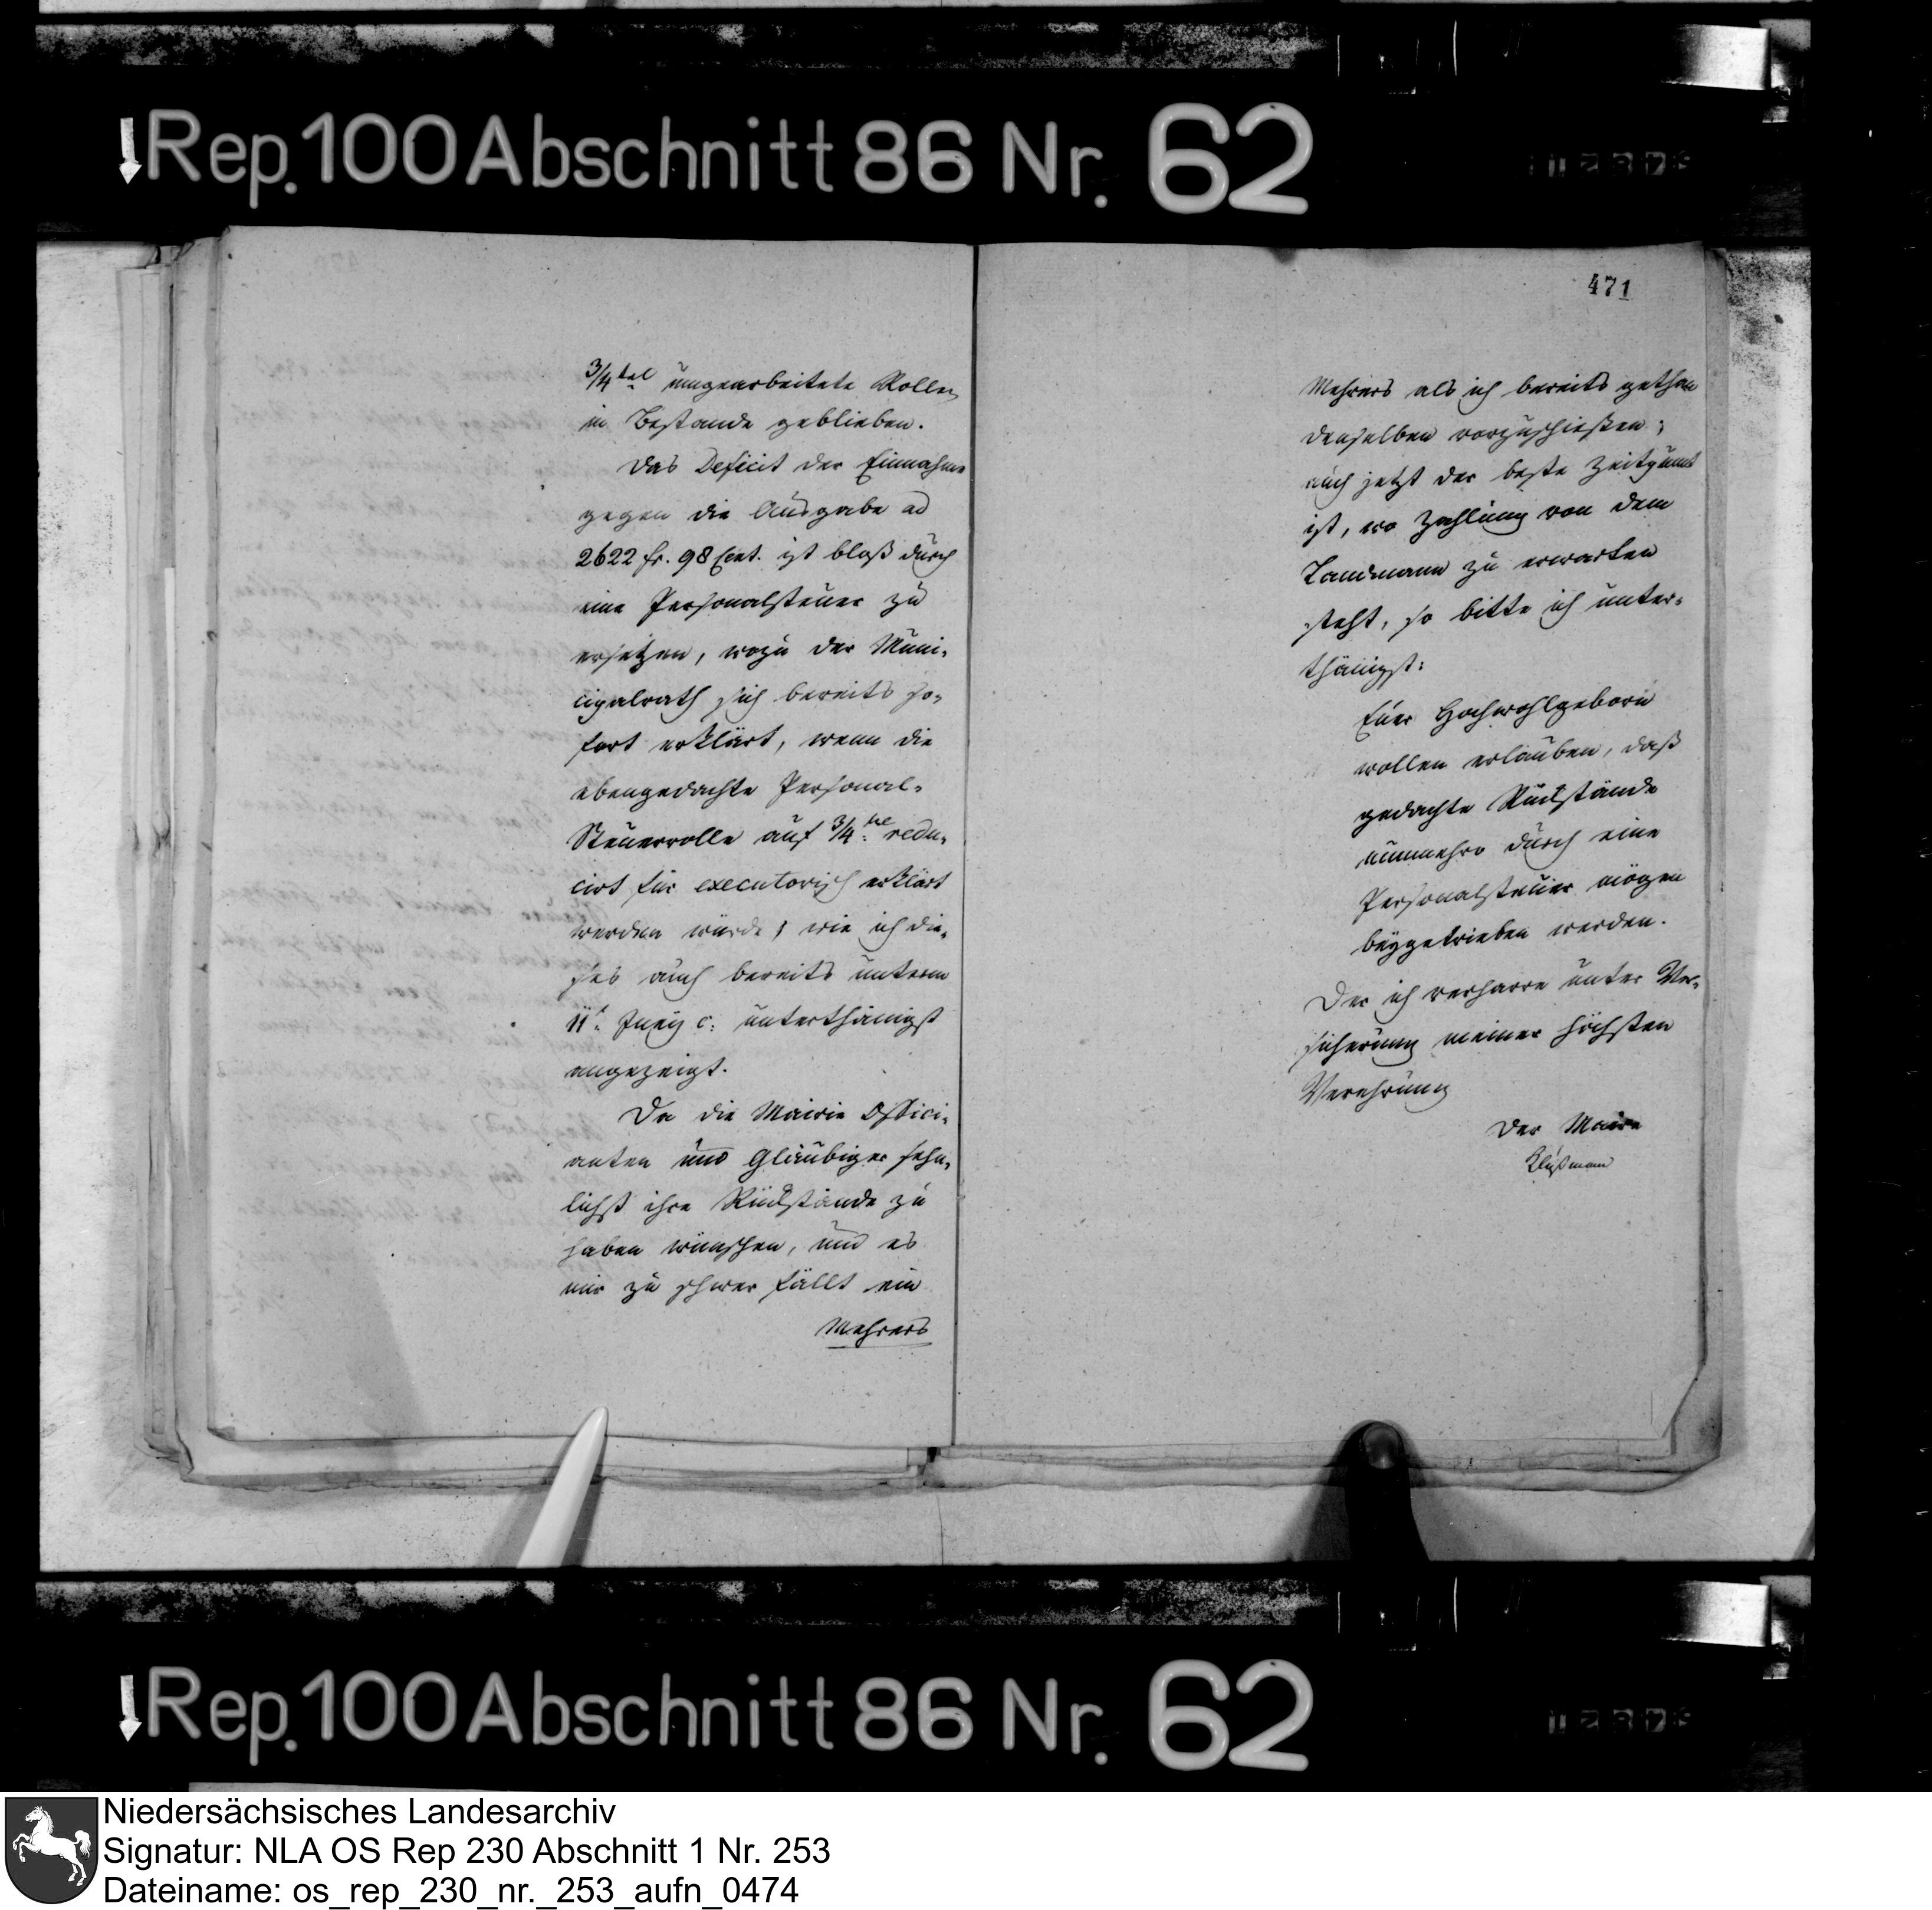 Rep. 100 Abschnitt 86 Nr. 62
3/4tel umgearbeitete Rolle
in Bestande geblieben.
Das Deficit der Einnahme
gegen die Ausgabe ad
2622 fr. 98 Cent. ist bloß durch
eine Personalsteuer zu
ersetzen, wozu der Muni-
cipalrath sich bereits so-
fort erklärt, wenn die
ebengedachte Personal-
Steuerrolle auf 3/4tel redu-
cirt für executorisch erklärt
werden würde; wie ich die-
ses auch bereits unterm
11t. Juny c. unterthänigst
angezeigt.
Da die Mairie Offici-
anten und Gläubiger sehn-
lichst ihre Rückstände zu
haben wünschen, und es
mir zu schwer fällt ein
Mehrers
471
Mehrers als ich bereits gethan
denselben vorzuschießen;
auch jetzt der beste Zeitpunct
ist, wo Zahlung von dem
Landmann zu erwarten
steht, so bitte ich unter-
thänigst:
Euer Hochwohlgeborn
wollen erlauben, daß
gedachte Rückstände
nunmehro durch eine
Personalsteuer mögen
beygetrieben werden.
Der ich verharre unter Ver-
sicherung meiner höchsten
Verehrung
Der Maire
Rep. 100 Abschnitt 86 Nr. 62
Niedersächsisches Landesarchiv
Signatur: NLA OS Rep 230 Abschnitt 1 Nr. 253
Dateiname: os_rep_230_nr._253_aufn_0474